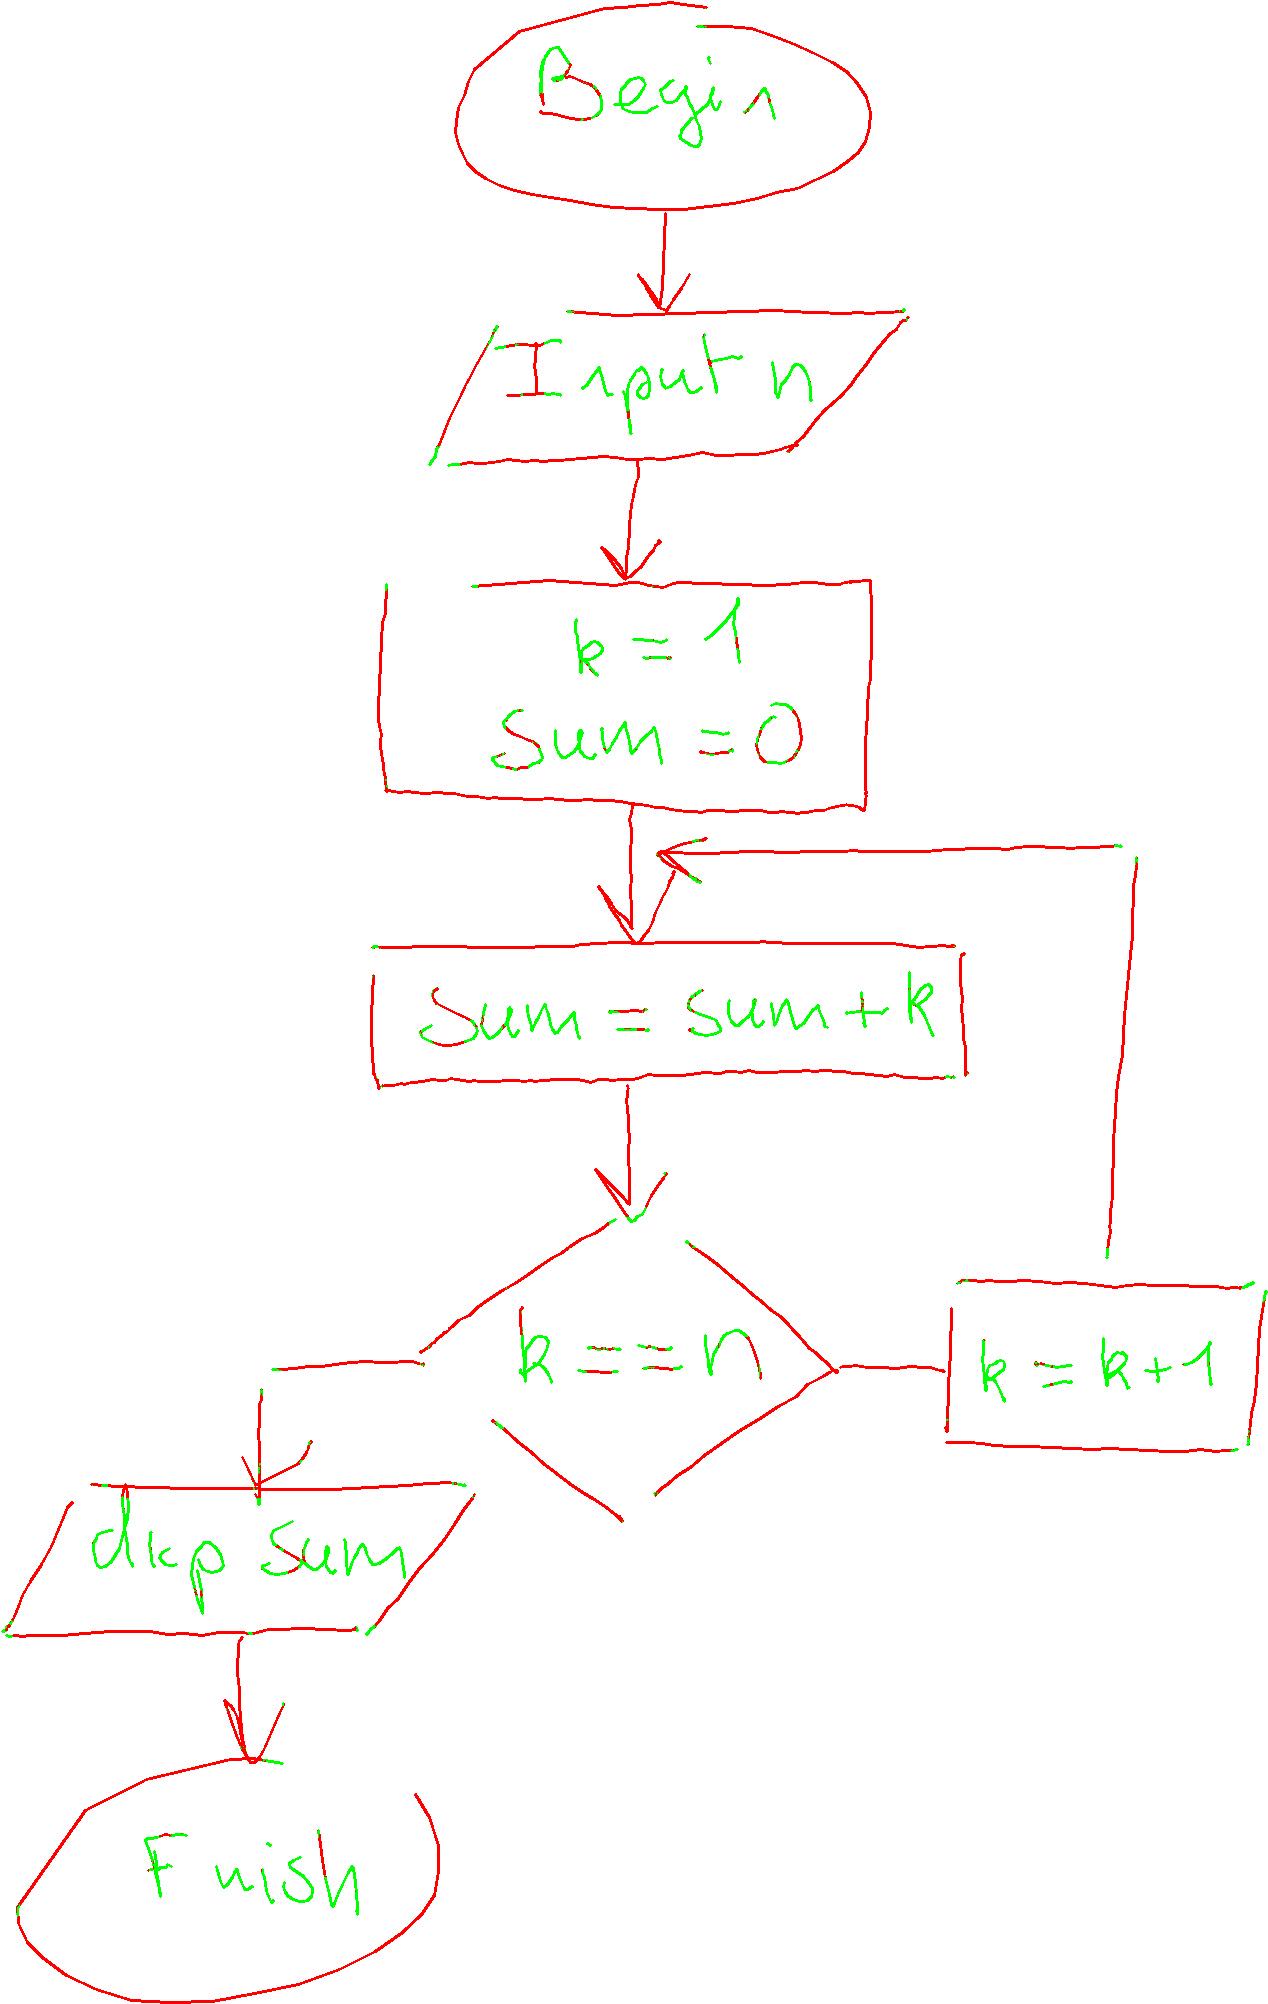 Begin
Input n
k = 1
Sum = 0
Sum = sum + k
k == n
k = k + 1
sum
Finish